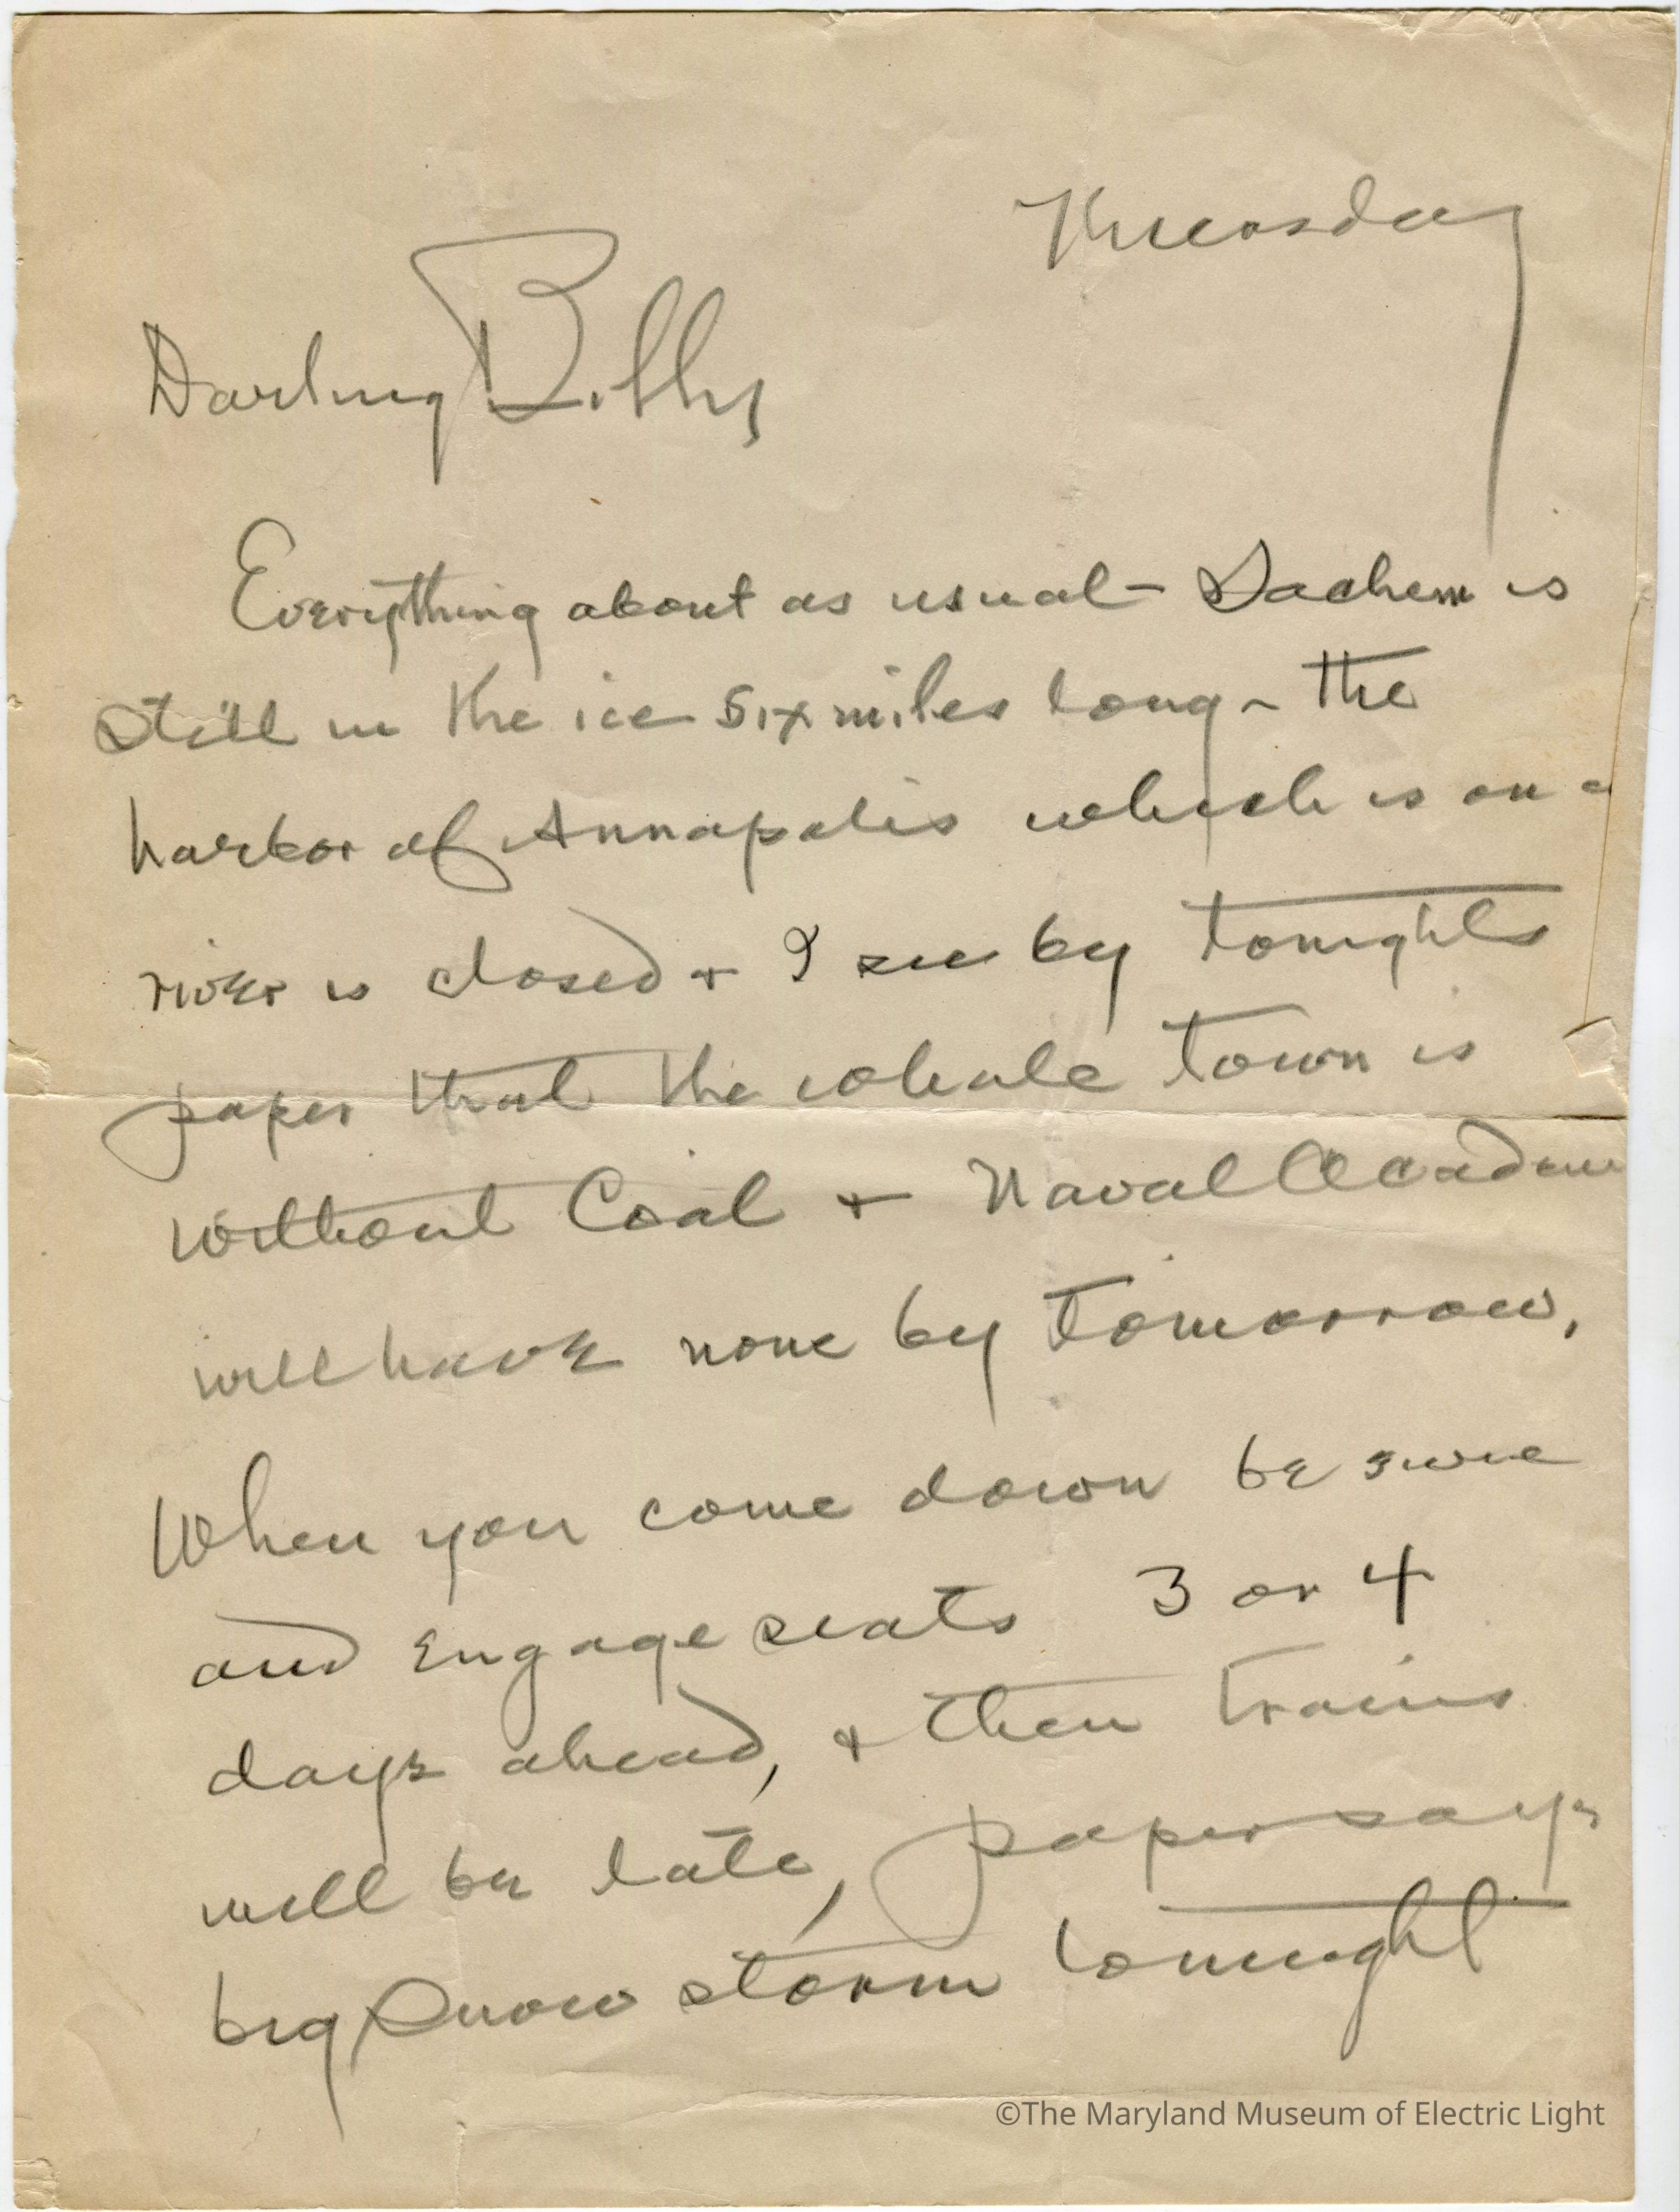 Thursday
Darling Billy
Everything about as usual - Sachem is
still in the ice six miles long - the
harbor of Annapolis which is on a
river is closed + I see by tonights
paper that the whole town is
without Coal + Naval Academ
will have none by tomorrow,
When you come down be sure
and engage seats 3 or 4
days ahead, + then trains
will be late, paper says
big snow storm tonight
©The Maryland Museum of Electric Light